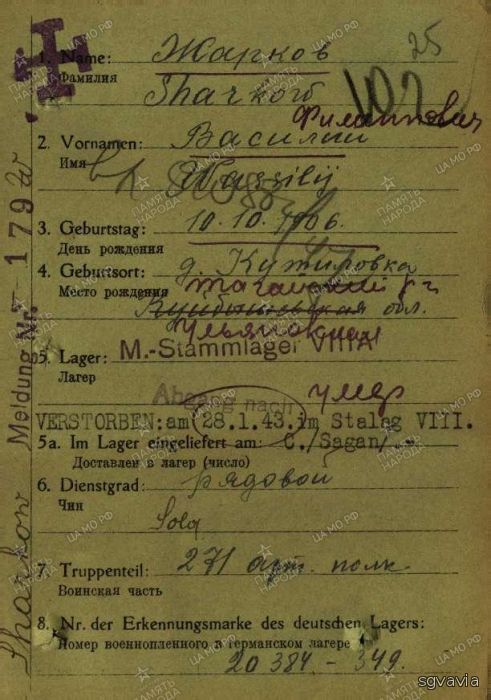 25
1. Name: Жарков
Фамилия
Sharkow
Филиппович
2. Vornamen: Василий
Имя
Wassilij
3. Geburtstag: 10.10.1906.
День рождения
4. Geburtsort: д. Кужировка
Место рождения
Куйбышевская обл.
Ульяновская
5. Lager: M.-Stammlager VIIIA
Лагер
Abgang nach умер
VERSTORBEN: am 28.1.43. im Stalag VIII.
5a. Im Lager eingeliefert am: C./Sagan/
Доставлен в лагер (число)
6. Dienstgrad: рядовой
Чин
Sold
7. Truppenteil: 271 арт. полк.
Воинская часть
8. Nr. der Erkennungsmarke des deutschen Lagers:
Номер военнопленного в германском лагере
20384 - 349.
Sharkow Meldung Nr. 179
ПАМЯТЬ НАРОДА
ЦАМО.РФ
sgvavia